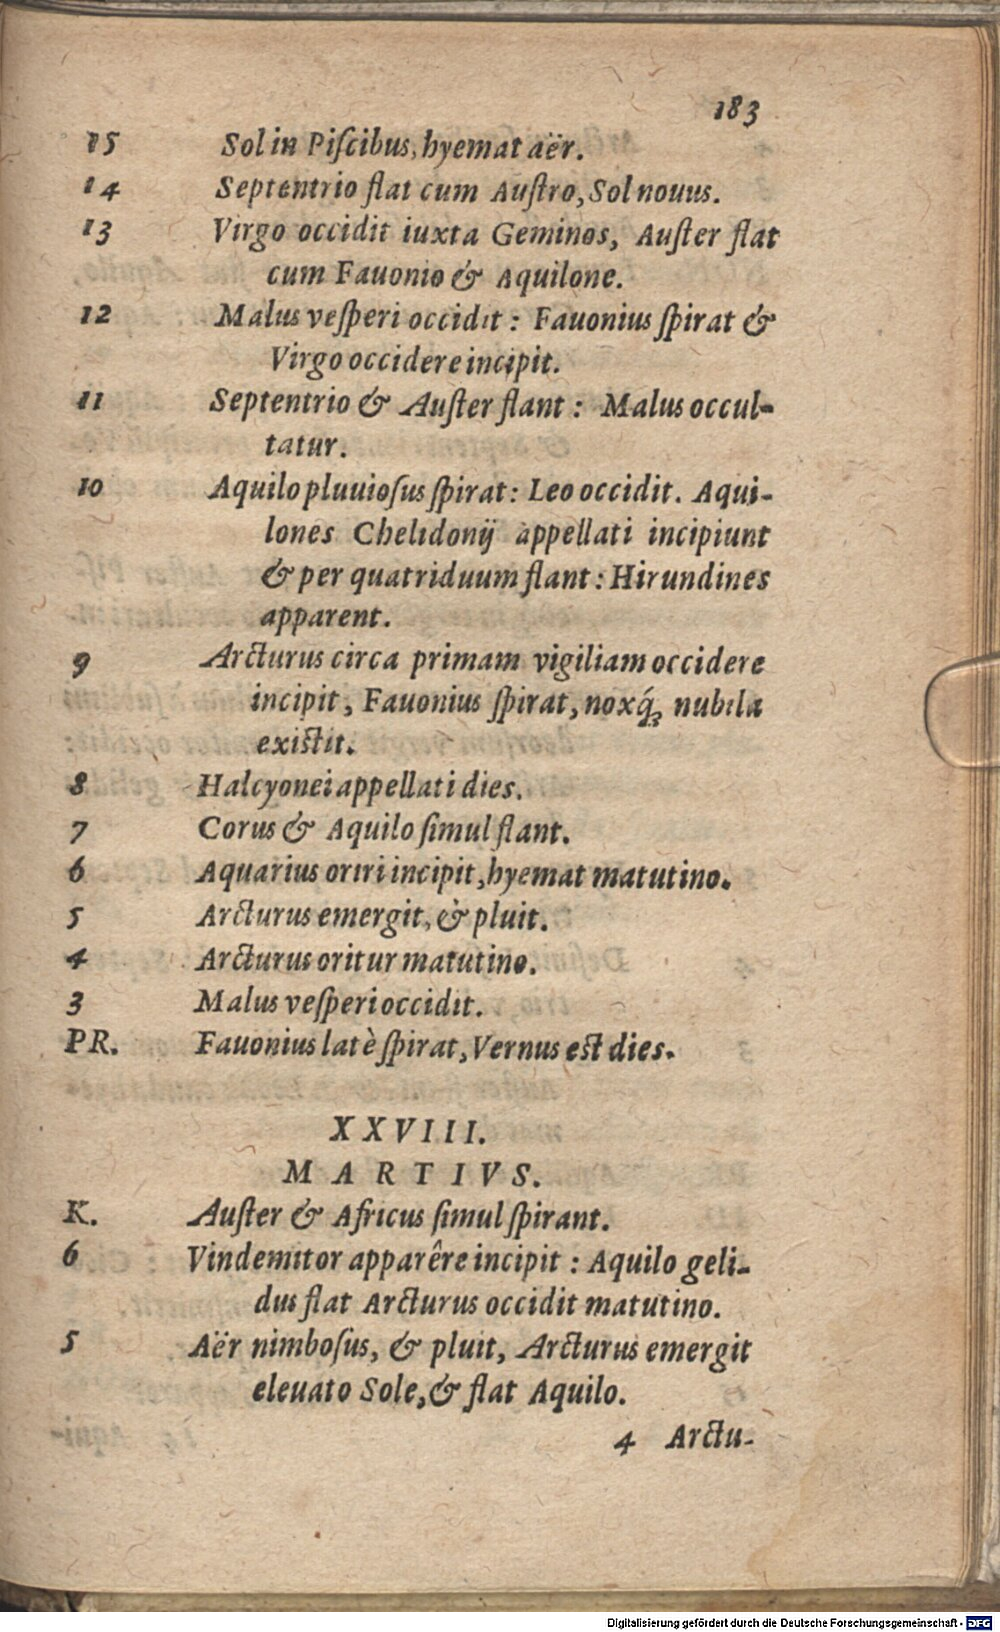 183
15 Sol in Piſcibus, hyemat aër.
14 Septentrio flat cum Auſtro, Sol nouus.
13 Virgo occidit iuxta Geminos, Auſter flat
cum Fauonio & Aquilone.
12 Malus veſperi occidit : Fauonius ſpirat &
Virgo occidere incipit.
11 Septentrio & Auſter flant : Malus occul-
tatur.
10 Aquilo pluuioſus ſpirat : Leo occidit. Aqui-
lones Chelidonij appellati incipiunt
& per quatriduum flant : Hirundines
apparent.
9 Arcturus circa primam vigiliam occidere
incipit, Fauonius ſpirat, noxq́ꝫ nubila
existit.
8 Halcyonei appellati dies.
7 Corus & Aquilo ſimul flant.
6 Aquarius oriri incipit, hyemat matutino.
5 Arcturus emergit, & pluit.
4 Arcturus oritur matutino.
3 Malus veſperi occidit.
PR. Fauonius latè ſpirat, Vernus est dies.
XXVIII.
MARTIVS.
K. Auſter & Africus ſimul ſpirant.
6 Vindemitor apparêre incipit : Aquilo geli-
dus flat Arcturus occidit matutino.
5 Aër nimboſus, & pluit, Arcturus emergit
eleuato Sole, & flat Aquilo.
4 Arctu-
Digitalisierung gefördert durch die Deutsche Forschungsgemeinschaft - DFG